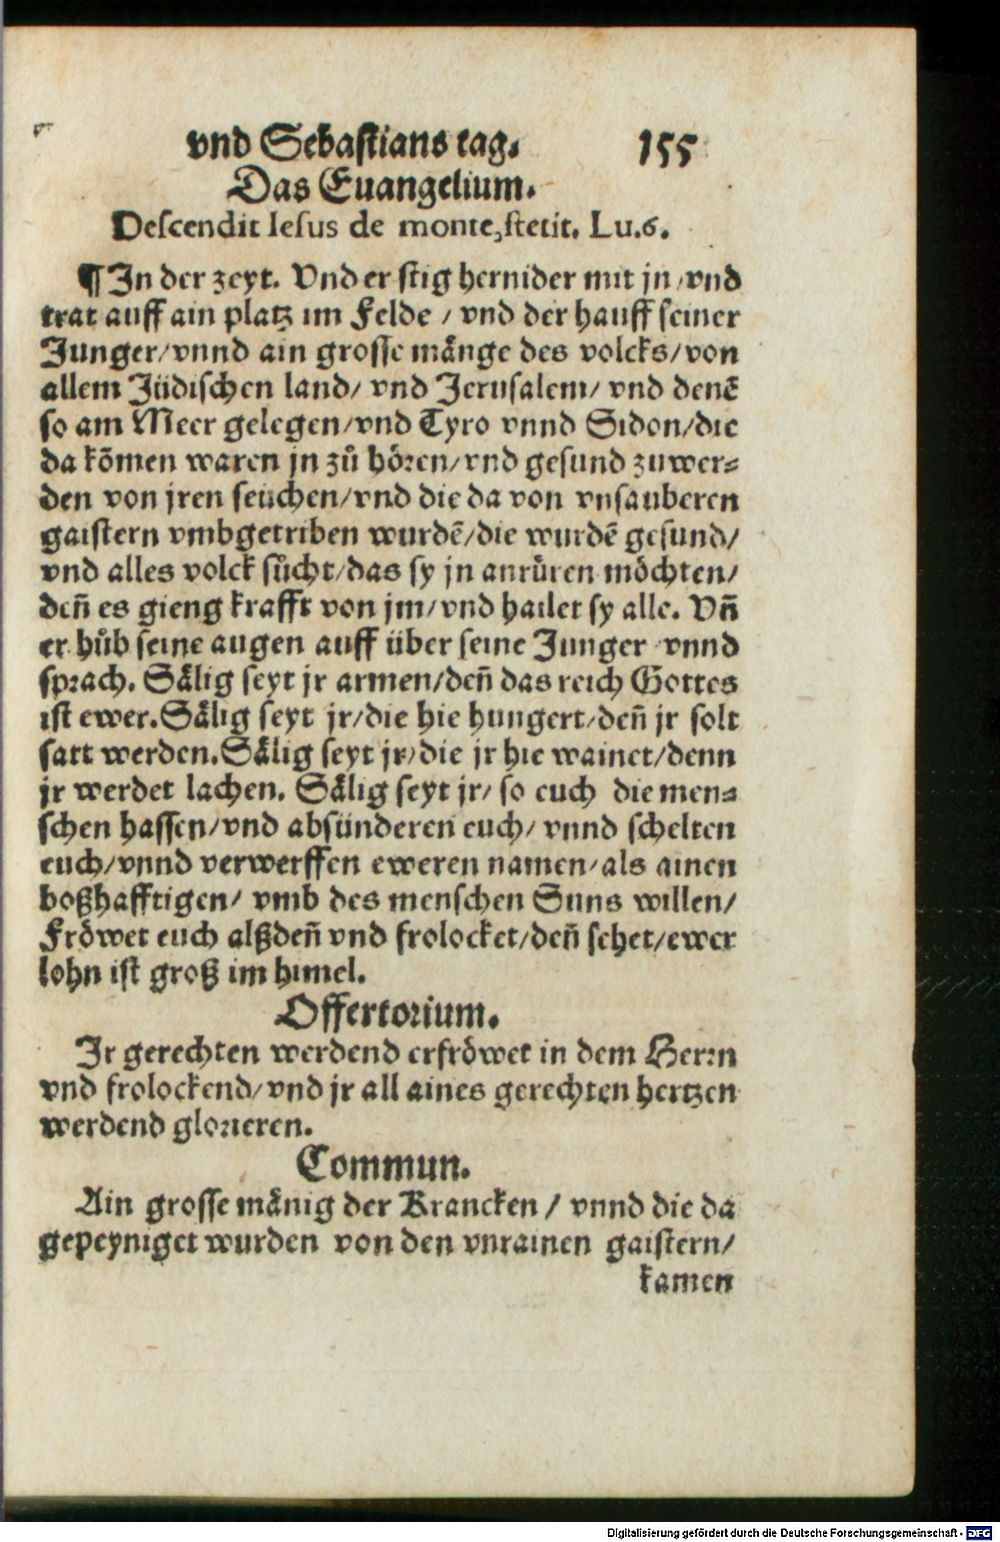 vnd Sebastians tag. 155
Das Euangelium.
Descendit Iesus de monte, stetit. Lu.6.
¶ In der zeyt. Vnd er stig hernider mit jn/vnd
trat auff ain platz im Felde / vnd der hauff seiner
Junger/vnnd ain grosse mänge des volcks/von
allem Jüdischen land/ vnd Jerusalem/ vnd denē
so am Meer gelegen/vnd Tyro vnnd Sidon/die
da kōmen waren jn zů hören/vnd gesund zuwer⸗
den von jren seüchen/vnd die da von vnsauberen
gaistern vmbgetriben wurdē/die wurdē gesund/
vnd alles volck sůcht/das sy jn anrüren möchten/
deñ es gieng krafft von jm/vnd hailet sy alle. Vñ
er hůb seine augen auff über seine Junger vnnd
sprach. Sälig seyt jr armen/deñ das reich Gottes
ist ewer. Sälig seyt jr/die hie hungert/deñ jr solt
satt werden. Sälig seyt jr/die jr hie wainet/denn
jr werdet lachen. Sälig seyt jr/ so euch die men⸗
schen hassen/vnd absünderen euch/ vnnd schelten
euch/vnnd verwerffen eweren namen/als ainen
boßhafftigen/ vmb des menschen Suns willen/
Fröwet euch alßdeñ vnd frolocket/deñ sehet/ewer
lohn ist groß im himel.
Offertorium.
Ir gerechten werdend erfröwet in dem Herrn
vnd frolockend/vnd jr all aines gerechten hertzen
werdend glorieren.
Commun.
Ain grosse mänig der Krancken / vnnd die da
gepeyniget wurden von den vnrainen gaistern/
kamen
Digitalisierung gefördert durch die Deutsche Forschungsgemeinschaft - DFG